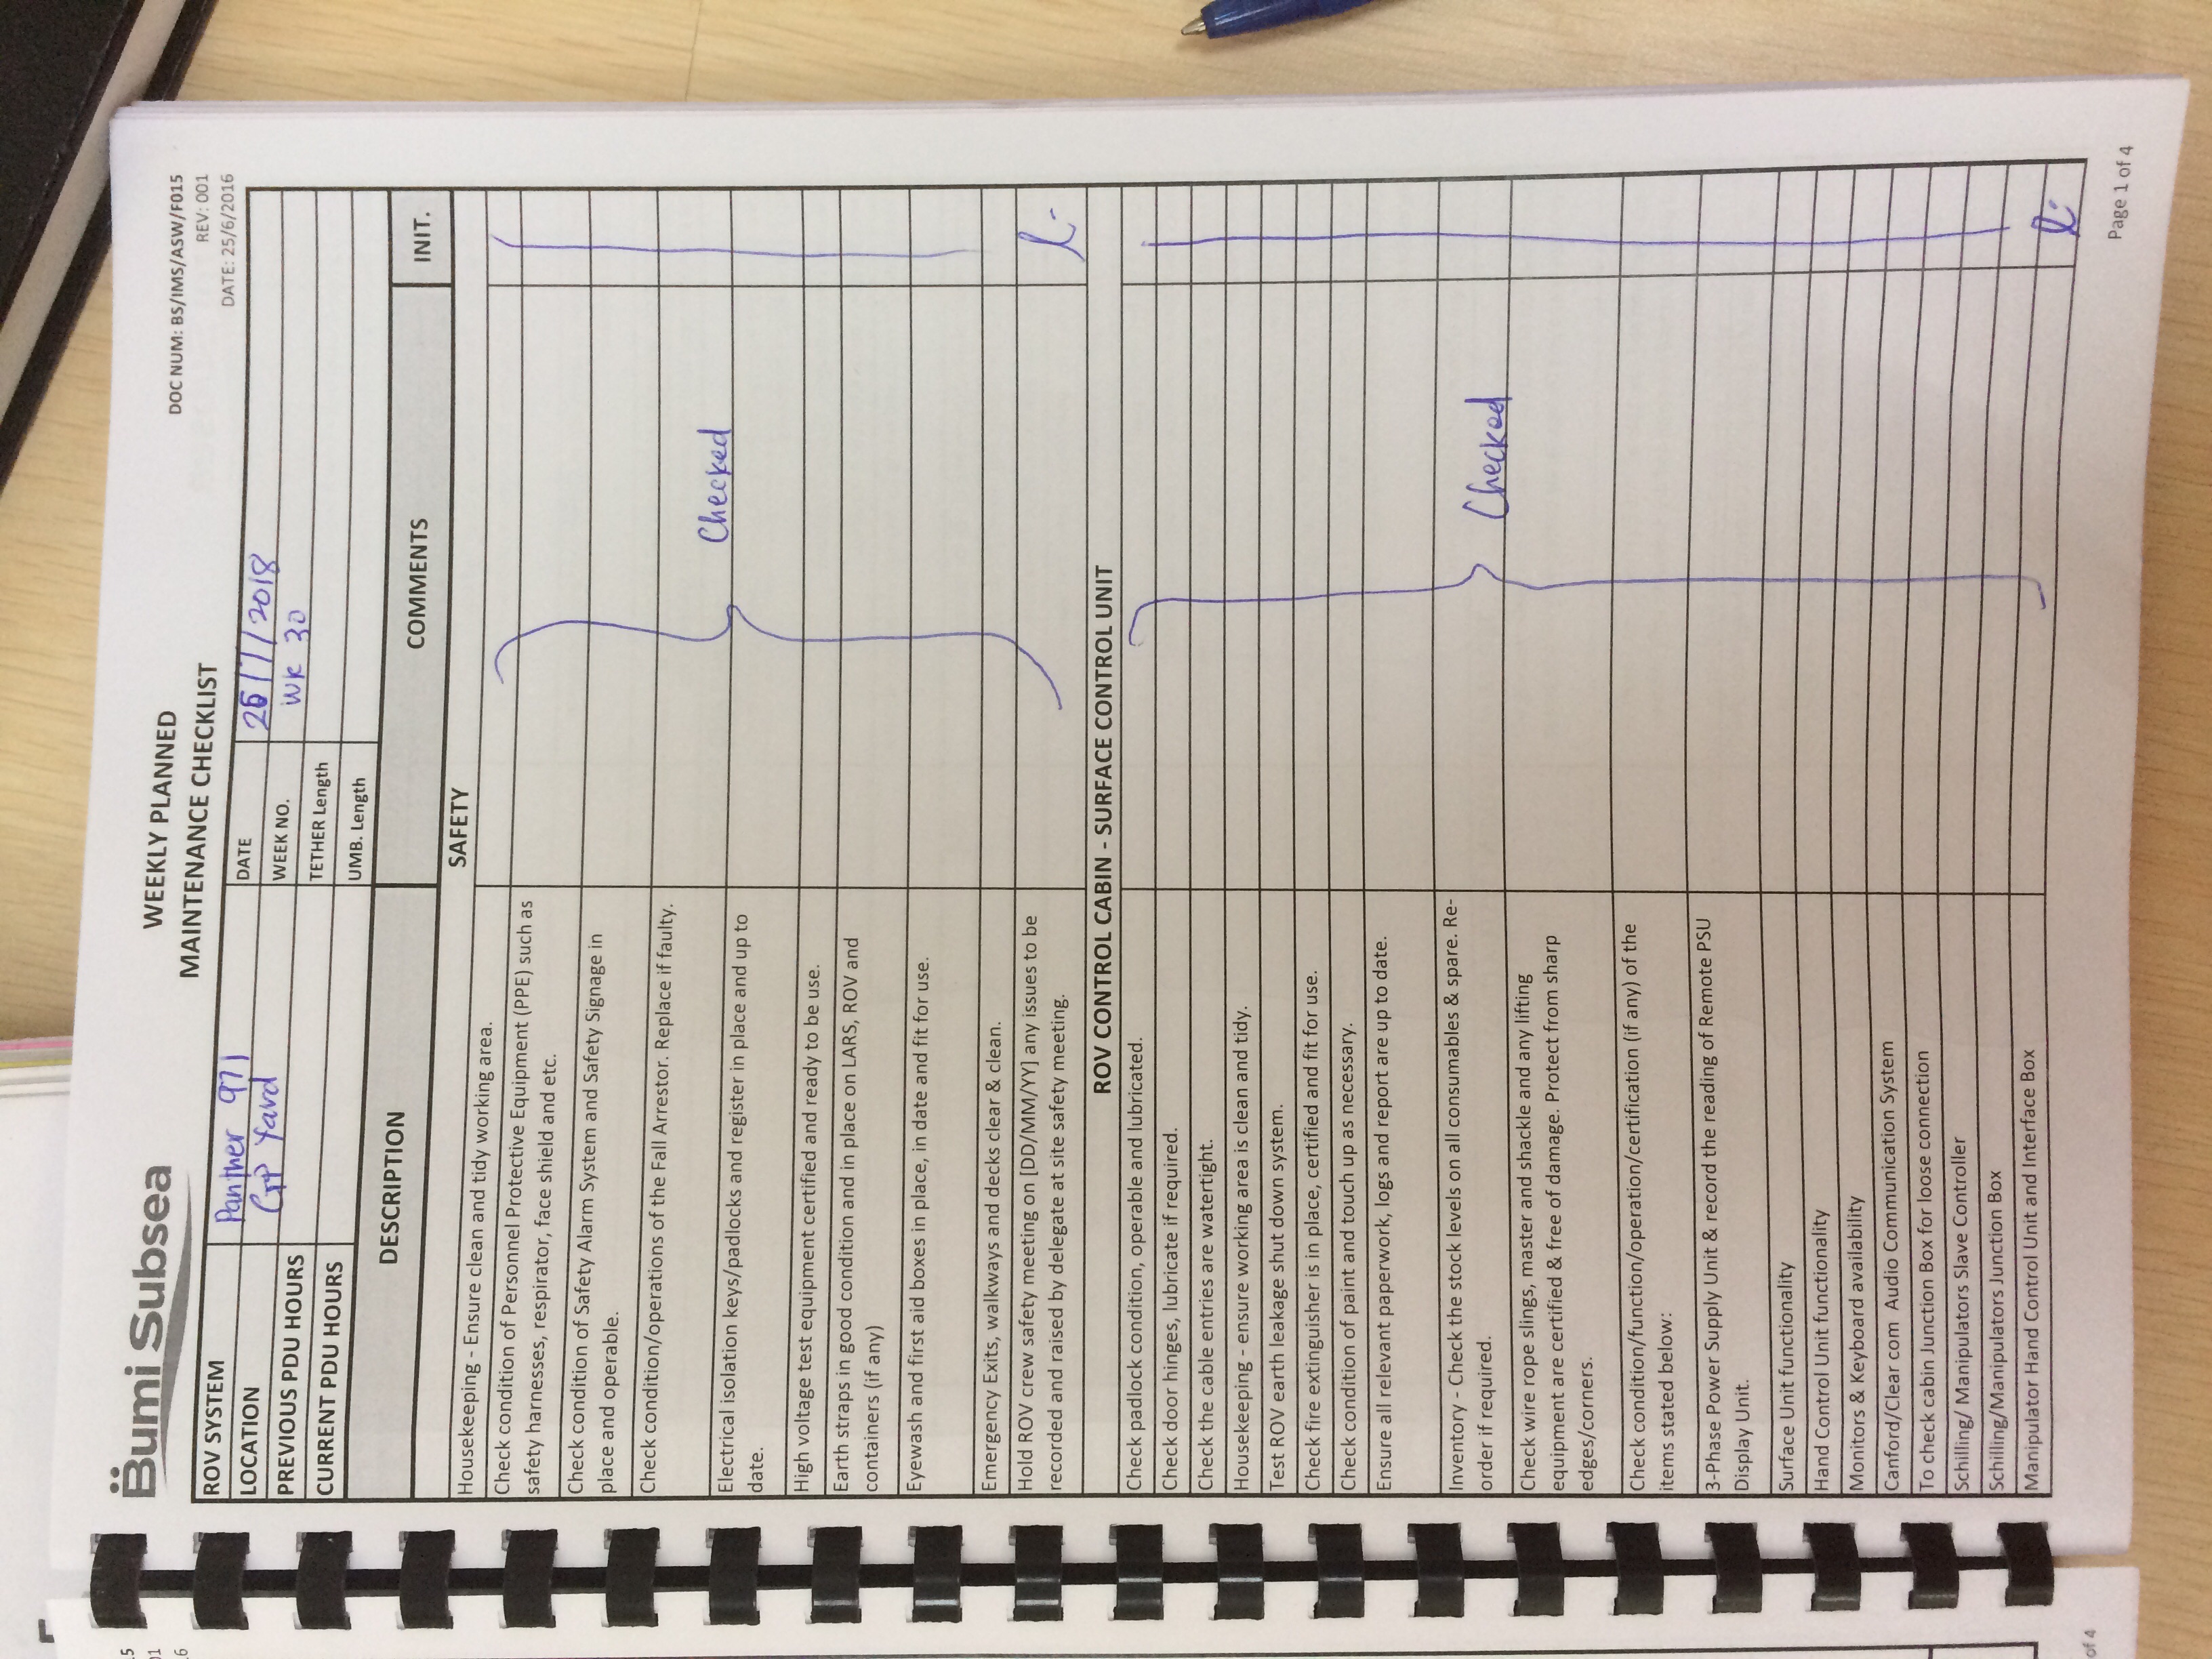 5
01
6
Bumi Subsea
WEEKLY PLANNED
MAINTENANCE CHECKLIST
DOC NUM: BS/IMS/ASW/F015
REV: 001
DATE: 25/6/2016
ROV SYSTEM Panther 971 DATE /7/2018
LOCATION Yard WEEK NO. WK 30
PREVIOUS PDU HOURS TETHER Length
CURRENT PDU HOURS UMB. Length
DESCRIPTION COMMENTS INIT.
SAFETY
Housekeeping - Ensure clean and tidy working area.
Check condition of Personnel Protective Equipment (PPE) such as
safety harnesses, respirator, face shield and etc.
Check condition of Safety Alarm System and Safety Signage in
place and operable.
Check condition/operations of the Fall Arrestor. Replace if faulty.
Checked
Electrical isolation keys/padlocks and register in place and up to
date.
High voltage test equipment certified and ready to be use.
Earth straps in good condition and in place on LARS, ROV and
containers (if any)
Eyewash and first aid boxes in place, in date and fit for use.
Emergency Exits, walkways and decks clear & clean.
Hold ROV crew safety meeting on [DD/MM/YY] any issues to be
recorded and raised by delegate at site safety meeting.
ROV CONTROL CABIN - SURFACE CONTROL UNIT
Check padlock condition, operable and lubricated.
Check door hinges, lubricate if required.
Check the cable entries are watertight.
Housekeeping - ensure working area is clean and tidy.
Test ROV earth leakage shut down system.
Check fire extinguisher is in place, certified and fit for use.
Check condition of paint and touch up as necessary.
Ensure all relevant paperwork, logs and report are up to date.
Inventory - Check the stock levels on all consumables & spare. Re-
order if required.
Checked
Check wire rope slings, master and shackle and any lifting
equipment are certified & free of damage. Protect from sharp
edges/corners.
Check condition/function/operation/certification (if any) of the
items stated below:
3-Phase Power Supply Unit & record the reading of Remote PSU
Display Unit.
Surface Unit functionality
Hand Control Unit functionality
Monitors & Keyboard availability
Canford/Clear com Audio Communication System
To check cabin Junction Box for loose connection
Schilling/ Manipulators Slave Controller
Schilling/Manipulators Junction Box
Manipulator Hand Control Unit and Interface Box
of 4
Page 1 of 4